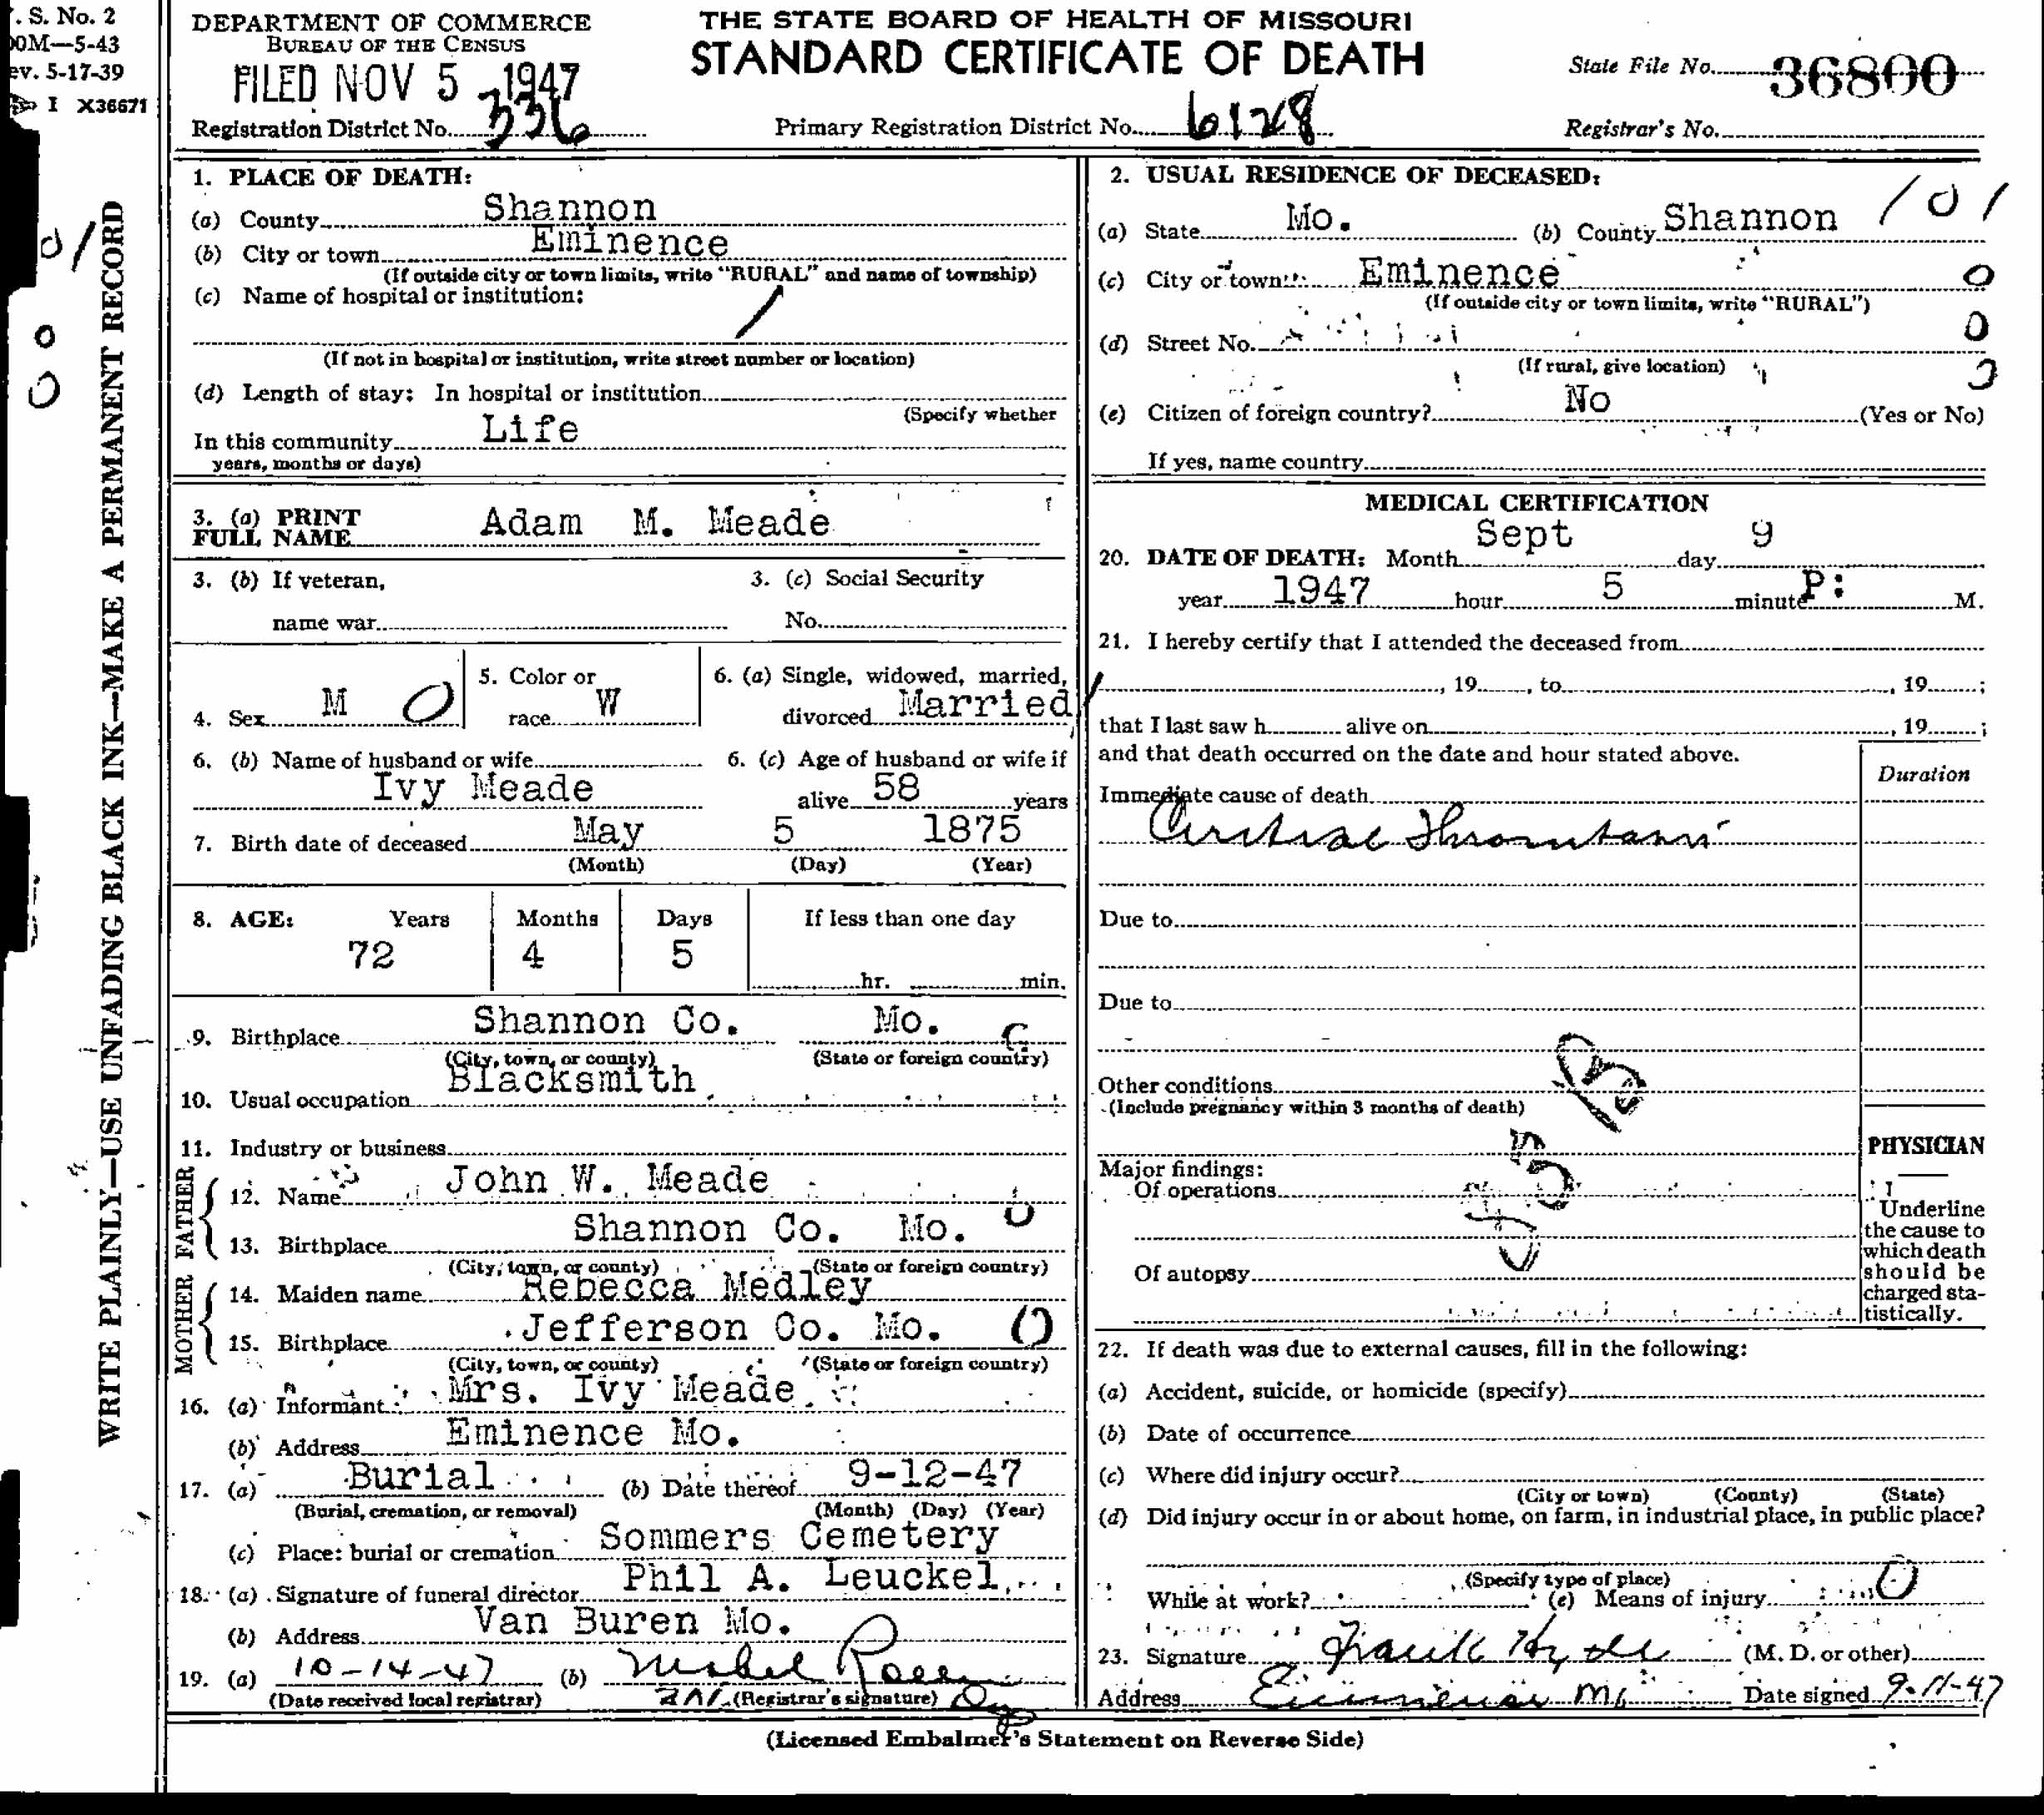 . S. No. 2
00M—5-43
ev. 5-17-39
I X36671
DEPARTMENT OF COMMERCE
BUREAU OF THE CENSUS
FILED NOV 5 1947
Registration District No. 336
THE STATE BOARD OF HEALTH OF MISSOURI
STANDARD CERTIFICATE OF DEATH
Primary Registration District No. 6128
State File No. 36800
Registrar's No.
WRITE PLAINLY—USE UNFADING BLACK INK—MAKE A PERMANENT RECORD
0/
0
0
1. PLACE OF DEATH:
(a) County Shannon
(b) City or town Eminence
(If outside city or town limits, write "RURAL" and name of township)
(c) Name of hospital or institution:
(If not in hospital or institution, write street number or location)
(d) Length of stay: In hospital or institution
(Specify whether
In this community Life
years, months or days)
3. (a) PRINT
FULL NAME Adam M. Meade
3. (b) If veteran,
name war
3. (c) Social Security
No.
4. Sex M 0
5. Color or
race W
6. (a) Single, widowed, married,
divorced Married
6. (b) Name of husband or wife
Ivy Meade
6. (c) Age of husband or wife if
alive 58 years
7. Birth date of deceased May 5 1875
(Month) (Day) (Year)
8. AGE: Years Months Days If less than one day
72 4 5
hr. min.
9. Birthplace Shannon Co. Mo.
(City, town, or county) (State or foreign country)
10. Usual occupation Blacksmith
11. Industry or business
FATHER
12. Name John W. Meade
13. Birthplace Shannon Co. Mo. 0
(City, town, or county) (State or foreign country)
MOTHER
14. Maiden name Rebecca Medley
15. Birthplace Jefferson Co. Mo. 0
(City, town, or county) (State or foreign country)
16. (a) Informant Mrs. Ivy Meade
(b) Address Eminence Mo.
17. (a) Burial (b) Date thereof 9-12-47
(Burial, cremation, or removal) (Month) (Day) (Year)
(c) Place: burial or cremation Sommers Cemetery
18. (a) Signature of funeral director Phil A. Leuckel
(b) Address Van Buren Mo.
19. (a) 10-14-47 (b) Mabel
(Date received local registrar) (Registrar's signature)
2. USUAL RESIDENCE OF DECEASED:
101
(a) State Mo. (b) County Shannon
(c) City or town Eminence 0
(If outside city or town limits, write "RURAL")
(d) Street No. 0
(If rural, give location)
(e) Citizen of foreign country? No (Yes or No)
If yes, name country
MEDICAL CERTIFICATION
20. DATE OF DEATH: Month Sept day 9
year 1947 hour 5 minute P: M.
21. I hereby certify that I attended the deceased from
, 19 , to , 19 ;
that I last saw h alive on , 19 ;
and that death occurred on the date and hour stated above.
Duration
Immediate cause of death
Due to
Due to
Other conditions
(Include pregnancy within 3 months of death)
Major findings:
Of operations
Of autopsy
PHYSICIAN
Underline
the cause to
which death
should be
charged sta-
tistically.
22. If death was due to external causes, fill in the following:
(a) Accident, suicide, or homicide (specify)
(b) Date of occurrence
(c) Where did injury occur?
(City or town) (County) (State)
(d) Did injury occur in or about home, on farm, in industrial place, in public place?
(Specify type of place)
While at work? (e) Means of injury 0
23. Signature Frank Hyde (M. D. or other)
Address Eminence Mo Date signed 9-11-47
(Licensed Embalmer's Statement on Reverse Side)